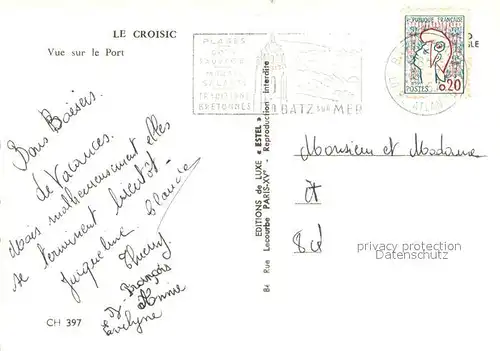 LE CROISIC
Vue sur le Port
PLAGES
COTE
SAUVAGE
MARAIS
SALANTS
TRADITIONS
BRETONNES
BATZ SUR MER
ATLAN
REPUBLIQUE FRANÇAISE
POSTES 0,20
Bons Baisers
de Vacances.
Mais malheureusement elles
se terminent bientôt.
Jacqueline Blanche
Thierry
J. François
Annie
Evelyne
CH 397
EDITIONS de LUXE « ESTEL »
84 Rue Lecourbe PARIS-XVe - Reproduction interdite
Monsieur et Madame
privacy protection
Datenschutz